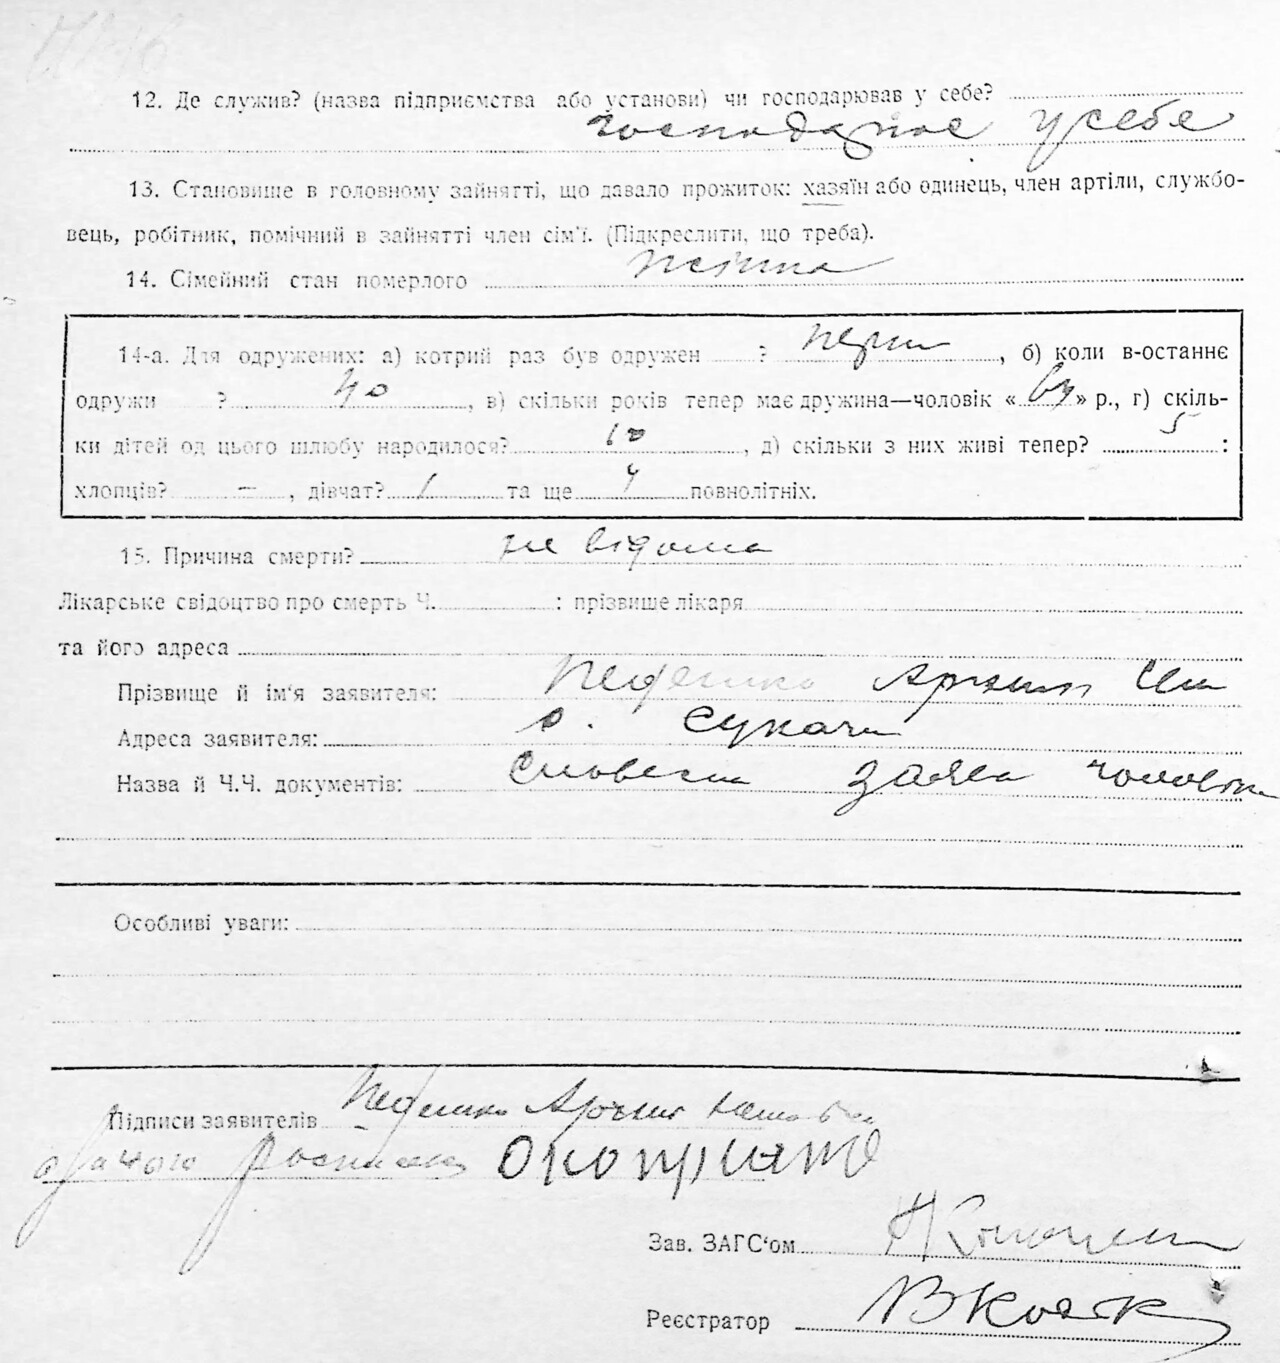 12. Де служив? (назва підприємства або установи) чи господарював у себе?
господарює у себе
13. Становище в головному зайнятті, що давало прожиток: хазяїн або одинець, член артіли, службо-
вець, робітник, помічний в зайнятті член сім'ї. (Підкреслити, що треба).
14. Сімейний стан померлого
14-а. Для одружених: а) котрий раз був одружен ? перш , б) коли в-останнє
одружи ? 40 , в) скільки років тепер має дружина—чоловік « » р., г) скіль-
ки дітей од цього шлюбу народилося? 10 , д) скільки з них живі тепер? 5 :
хлопців? — , дівчат? 1 та ще 4 повнолітніх.
15. Причина смерти? не відома
Лікарське свідоцтво про смерть Ч. : прізвище лікаря
та його адреса
Прізвище й ім'я заявителя:
Адреса заявителя: с. Сукачи
Назва й Ч.Ч. документів: Словесн заява чоловіка
Особливі уваги:
Підписи заявителів
Зав. ЗАГС‘ом
Реєстратор